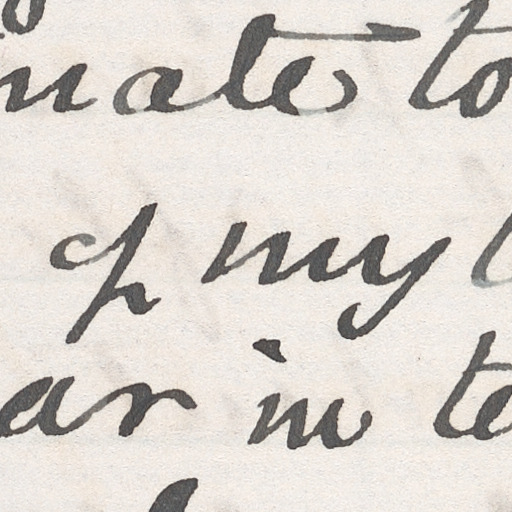 inate to
of my
ar in te